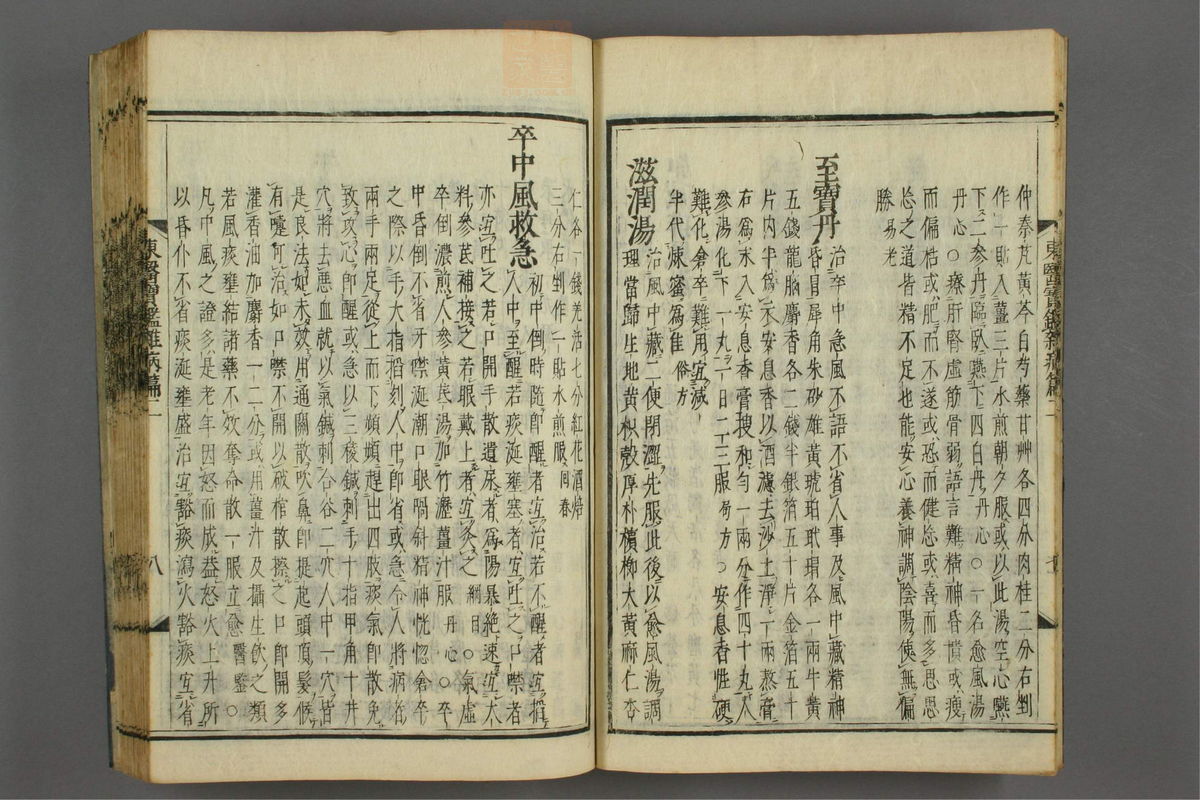 仲秦芃黃芩白芍藥甘艸各四分肉桂二分右剉
作一貼入薑三片水煎朝夕服或以此湯空心嚥
下二參丹臨臥嚥下四白丹丹心○一名愈風湯
丹心○療肝腎虛筋骨弱語言難精神昏憒或瘦
而偏枯或肥而不遂或恐而健忘或喜而多思思
忘之道皆精不足也能安心養神調陰陽使無偏
勝易老
至寶丹 治卒中急風不語不省人事及風中藏精神
昏冒犀角朱砂雄黃琥珀玳瑁各一兩牛黃
五錢龍腦麝香各二錢半銀箔五十片金箔五十
片內半爲衣安息香以酒濾去沙土淨一兩熬膏
右爲末入安息香膏搜和勻一兩分作四十丸人
參湯化下一丸一日二三服局方○安息香性硬
難化倉卒難用宜減
半代煉蜜爲佳俗方
滋潤湯 治風中藏二便閉澀先服此後以愈風湯調
理當歸生地黃枳殼厚朴檳榔大黃麻仁杏
東醫寶鑑雜病篇二
七
仁各一錢羌活七分紅花酒焙
三分右剉作一貼水煎服回春
卒中風救急 初中倒時隨卽醒者宜治若不醒者宜掐
人中至醒若痰涎壅塞者宜吐之口噤者
亦宜吐之若口開手散遺尿者爲陽暴絕速宜大
料參芪補接之若眼戴上者宜灸之綱目○氣虛
卒倒濃煎人參黃芪湯加竹瀝薑汁服丹心○卒
中昏倒不省牙噤涎潮口眼喎斜精神恍惚倉卒
之際以手大指掐刻人中卽省或急令人將病者
兩手兩足從上而下頻頻趕出四肢痰氣卽散免
致攻心卽醒或以三稜鍼刺手十指甲角十井
穴將去惡血就以氣鍼刺合谷二穴人中一穴皆
是良法如未效用通關散吹鼻卽提起頭頂髮候
有嚏可治如口噤不開以破棺散擦之口卽開多
灌香油加麝香一二分或用薑汁及攝生飮之類
若風痰壅結諸藥不效奪命散一服立愈醫鑑○
凡中風之證多是老年因怒而成盖怒火上升所
以昏仆不省痰涎壅盛治宜豁痰瀉火豁痰宜省
東醫寶鑑雜病篇二
八